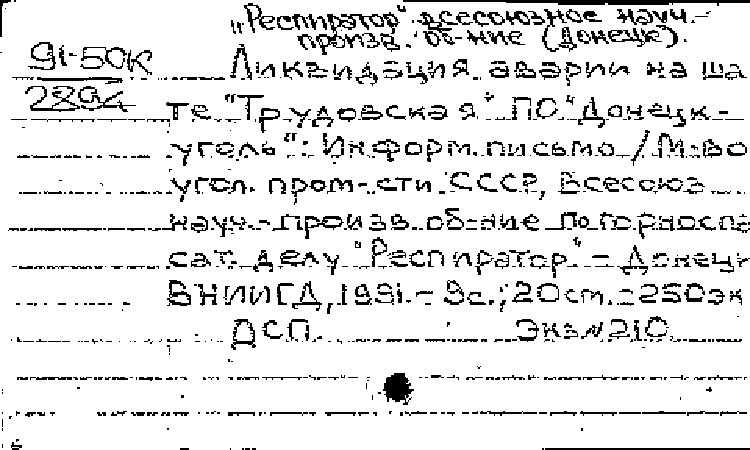 "Респиратор" всесоюзное науч.-
произв. об-ние (Донецк).
91-50К
2894
Ликвидация аварии на ша
те "Трудовская" ПО "Донецк-
уголь": Информ. письмо / М-во
угол. пром-сти СССР, Всесоюз
науч.-произв. об-ние по горноспа
сат. делу "Респиратор" - Донецк
ВНИИГД, 1991. - 9с.; 20 см. - 250 эк
ДСП. Экз N 210